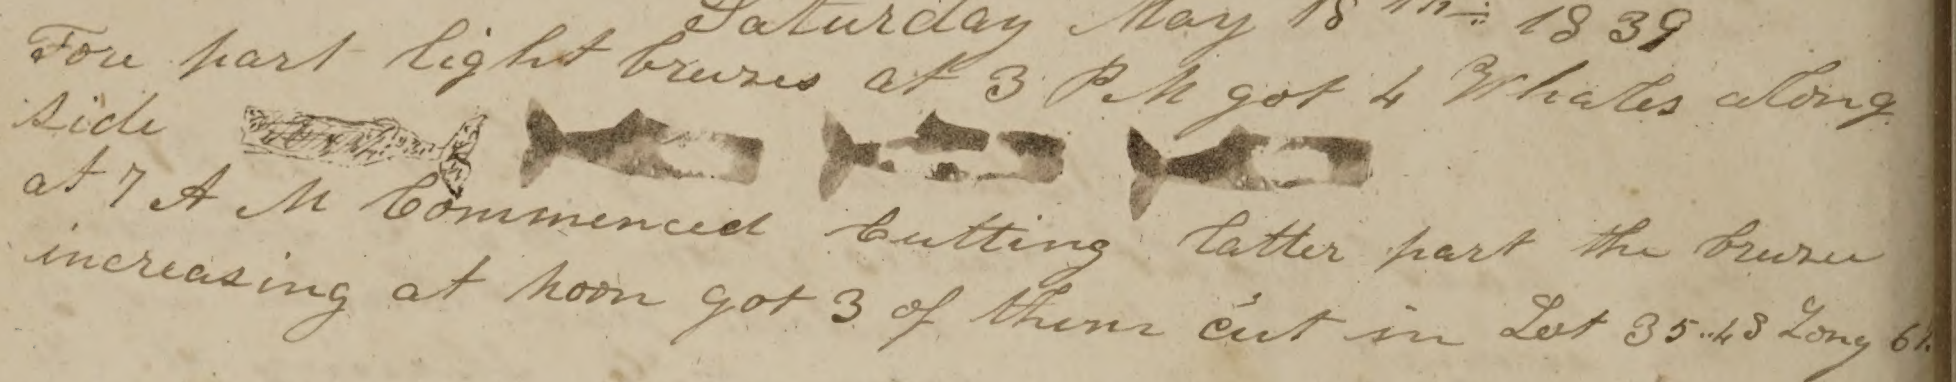 Saturday May 18th 1839
Fore part light breeses at 3 PM got 4 Whales along
side
at 7 A M Commenced Cutting latter part the breese
increasing at noon got 3 of them cut in Lat 35..48 Long